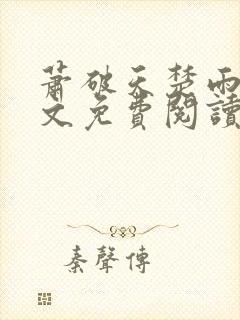 蕭破天楚雨
文免費閱讀
秦聲傳